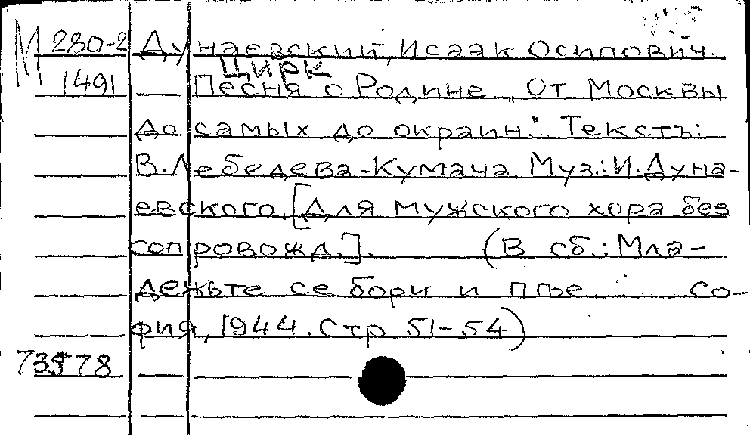 М 280-2 Дунаевский, Исаак Осипович.
Цирк
1491 Песня о Родине „От Москвы
до самых до окраин." Текстъ:
В. Лебедева-Кумача. Муз.: И. Дуна-
евского. [Для мужского хора без
сопровожд.]. (В сб.: Мла-
дежьте се бори и пъе. Со-
фия, 1944. Стр 51-54)